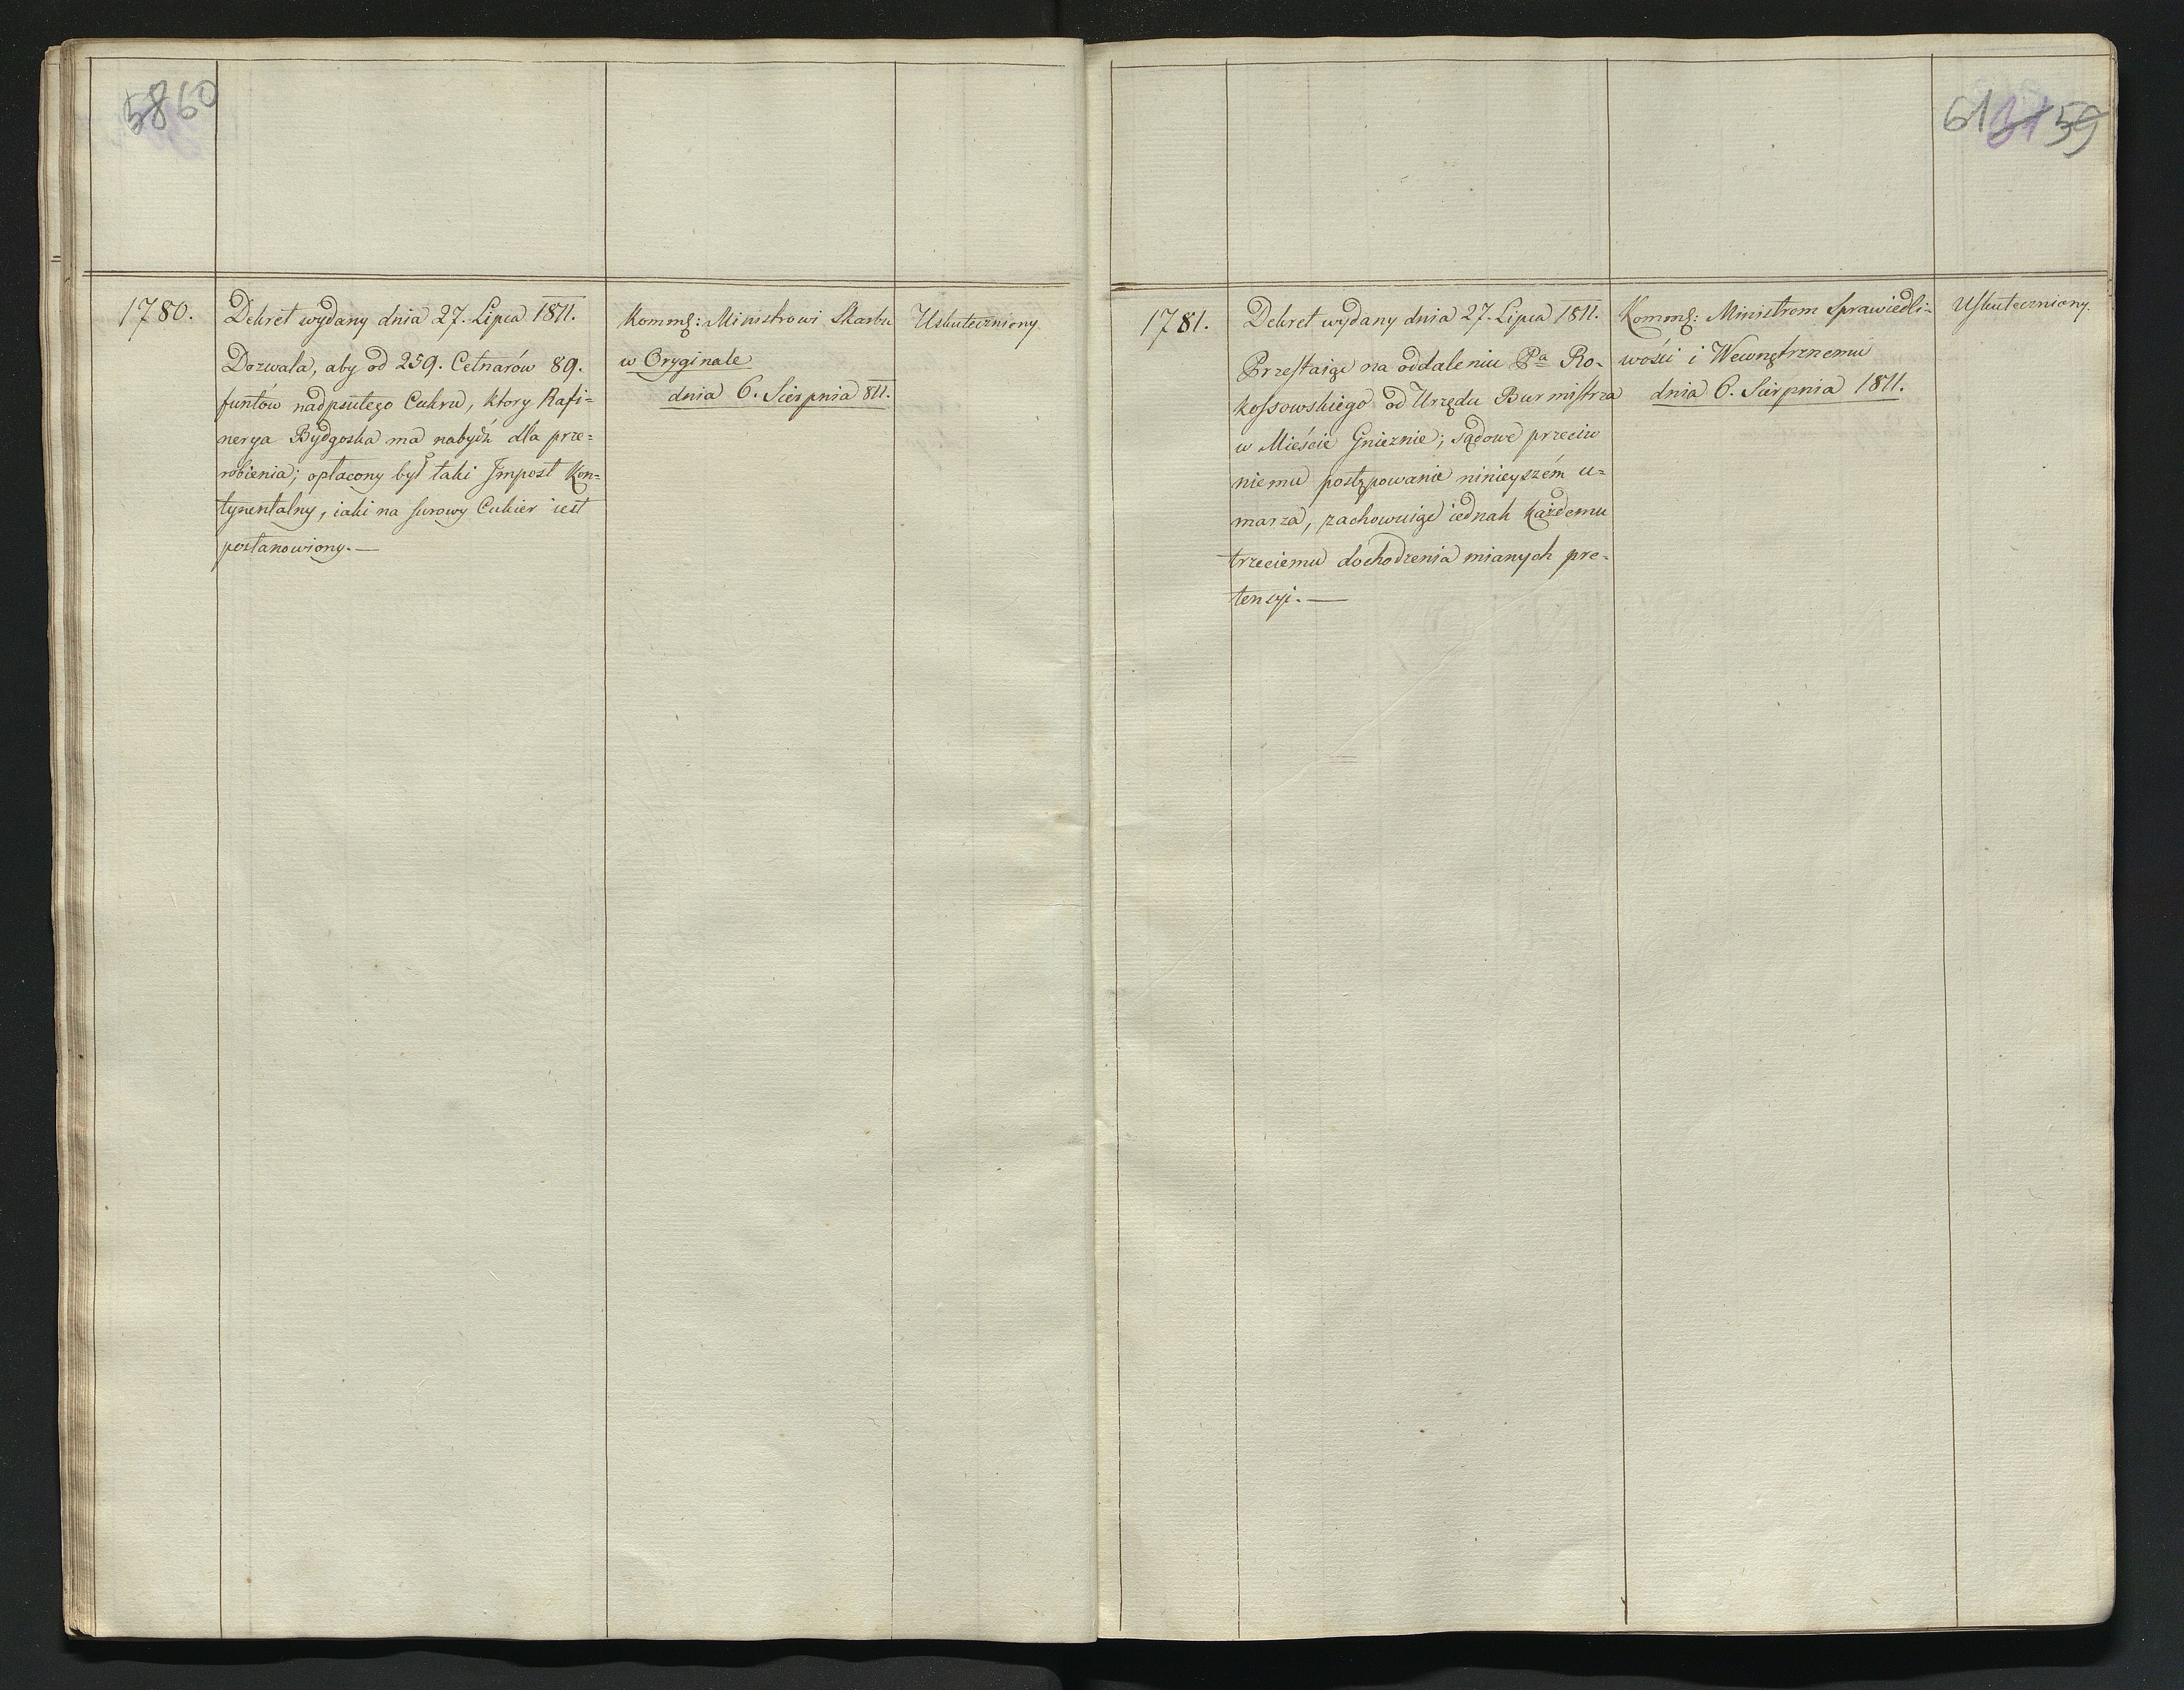 58 60
1780.
Dekret wydany dnia 27. Lipca 1811.
Dozwala, aby od 259. Cetnarów 89.
funtów nadpsutego Cukru, ktory Rafi-
nerya Bydgoska ma nabydź dla prze-
robienia; opłacony był taki Impost Kon-
tynentalny, iaki na surowy Cukier iest
postanowiony.—
Kommg: Ministrowi Skarbu
w Oryginale
dnia 6. Sierpnia 811.
Uskuteczniony.
61 31 59
1781.
Dekret wydany dnia 27. Lipca 1811.
Przestaiąc na oddaleniu Pa Ro-
kossowskiego od Urzędu Burmistrza
w Mieście Gnieznie; sądowe przeciw
niemu postępowanie ninieyszém u-
marza, zachowuiąc iednak każdemu
trzeciemu dochodzenia mianych pre-
tensyi.—
Kommg: Ministrom Sprawiedli-
wości i Wewnętrznemu
dnia 6. Sierpnia 1811.
Uskuteczniony.